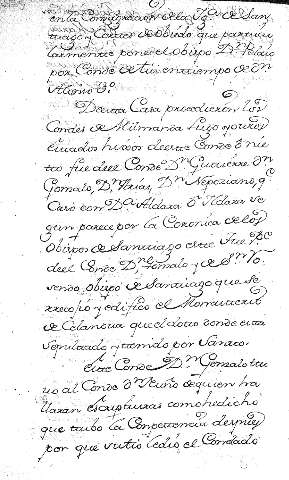 en la Consagracion de la Ygª de San
tiago y Carta de Obiedo que particu
larmente pone el obispo Dⁿ Pelaio
por Conde de Tui en tiempo de Dⁿ
Alonso 3º
De esta Casa prosedieron los
Condes de Milmanda Lugo y otros
lugares hixos de este Conde ô nie
to fue de el Conde Dⁿ Gutierre Dⁿ
Gonsalo, Dⁿ Arias, Dⁿ Nepoziano, qᵉ
Caso con Dª Aldara ô Ildara se
gun parece por la Coronica de los
Obispos de Santiago este fue Pᵉ
de el Conde Dⁿ Gonsalo y de Sⁿ Ro
sendo, obispo de Santiago que se
rrecojio y edifico el Monasterio
de Celanova que el doto donde esta
sepultado y tenido por Santo.
Este Conde Dⁿ Gonsalo tu
vo al Conde Dⁿ Nuño de quien ha
llaran escripturas como he dicho
que tubo la
por que se le dio el Condado